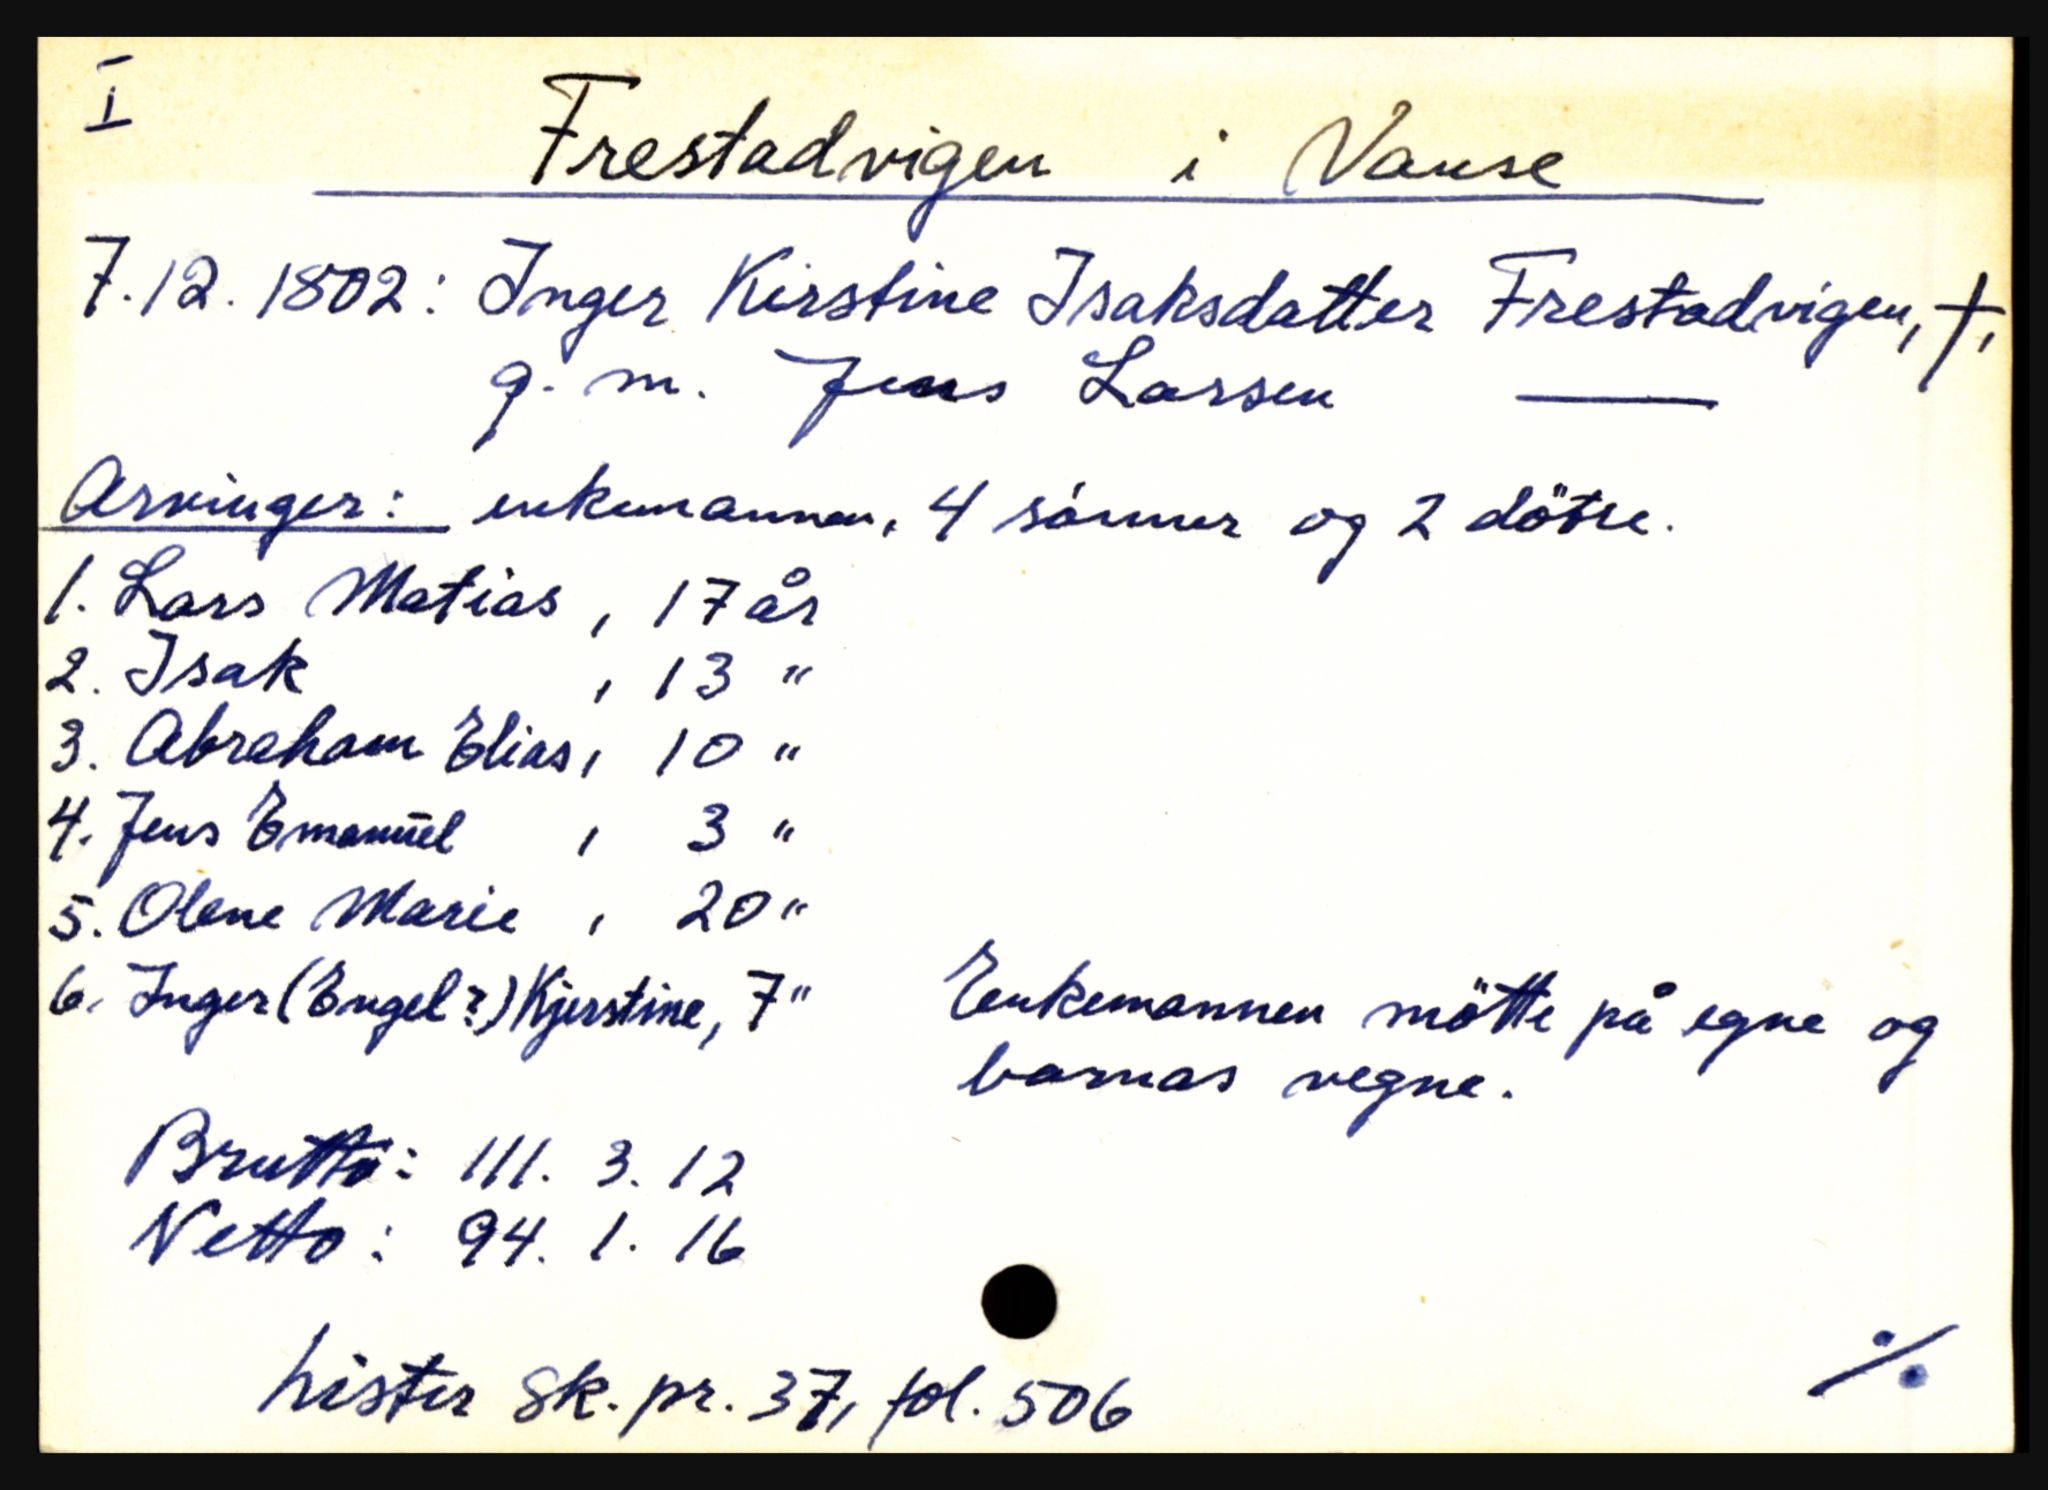 I
Frestadvigen i Vanse
7.12.1802: Inger Kirstine Isaksdatter Frestadvigen, †,
g. m. Jens Larsen ——
Arvinger: enkemannen, 4 sönner og 2 dötre.
1. Lars Matias, 17 år
2. Isak, 13 "
3. Abraham Elias, 10 "
4. Jens Emanuel, 3 "
5. Olene Marie, 20 "
6. Inger (Engel?) Kjerstine, 7 "
Enkemannen mötte på egne og
barnas vegne.
Brutto: 111. 3. 12
Netto: 94. 1. 16
Lister sk. pr. 37, fol. 506
./.